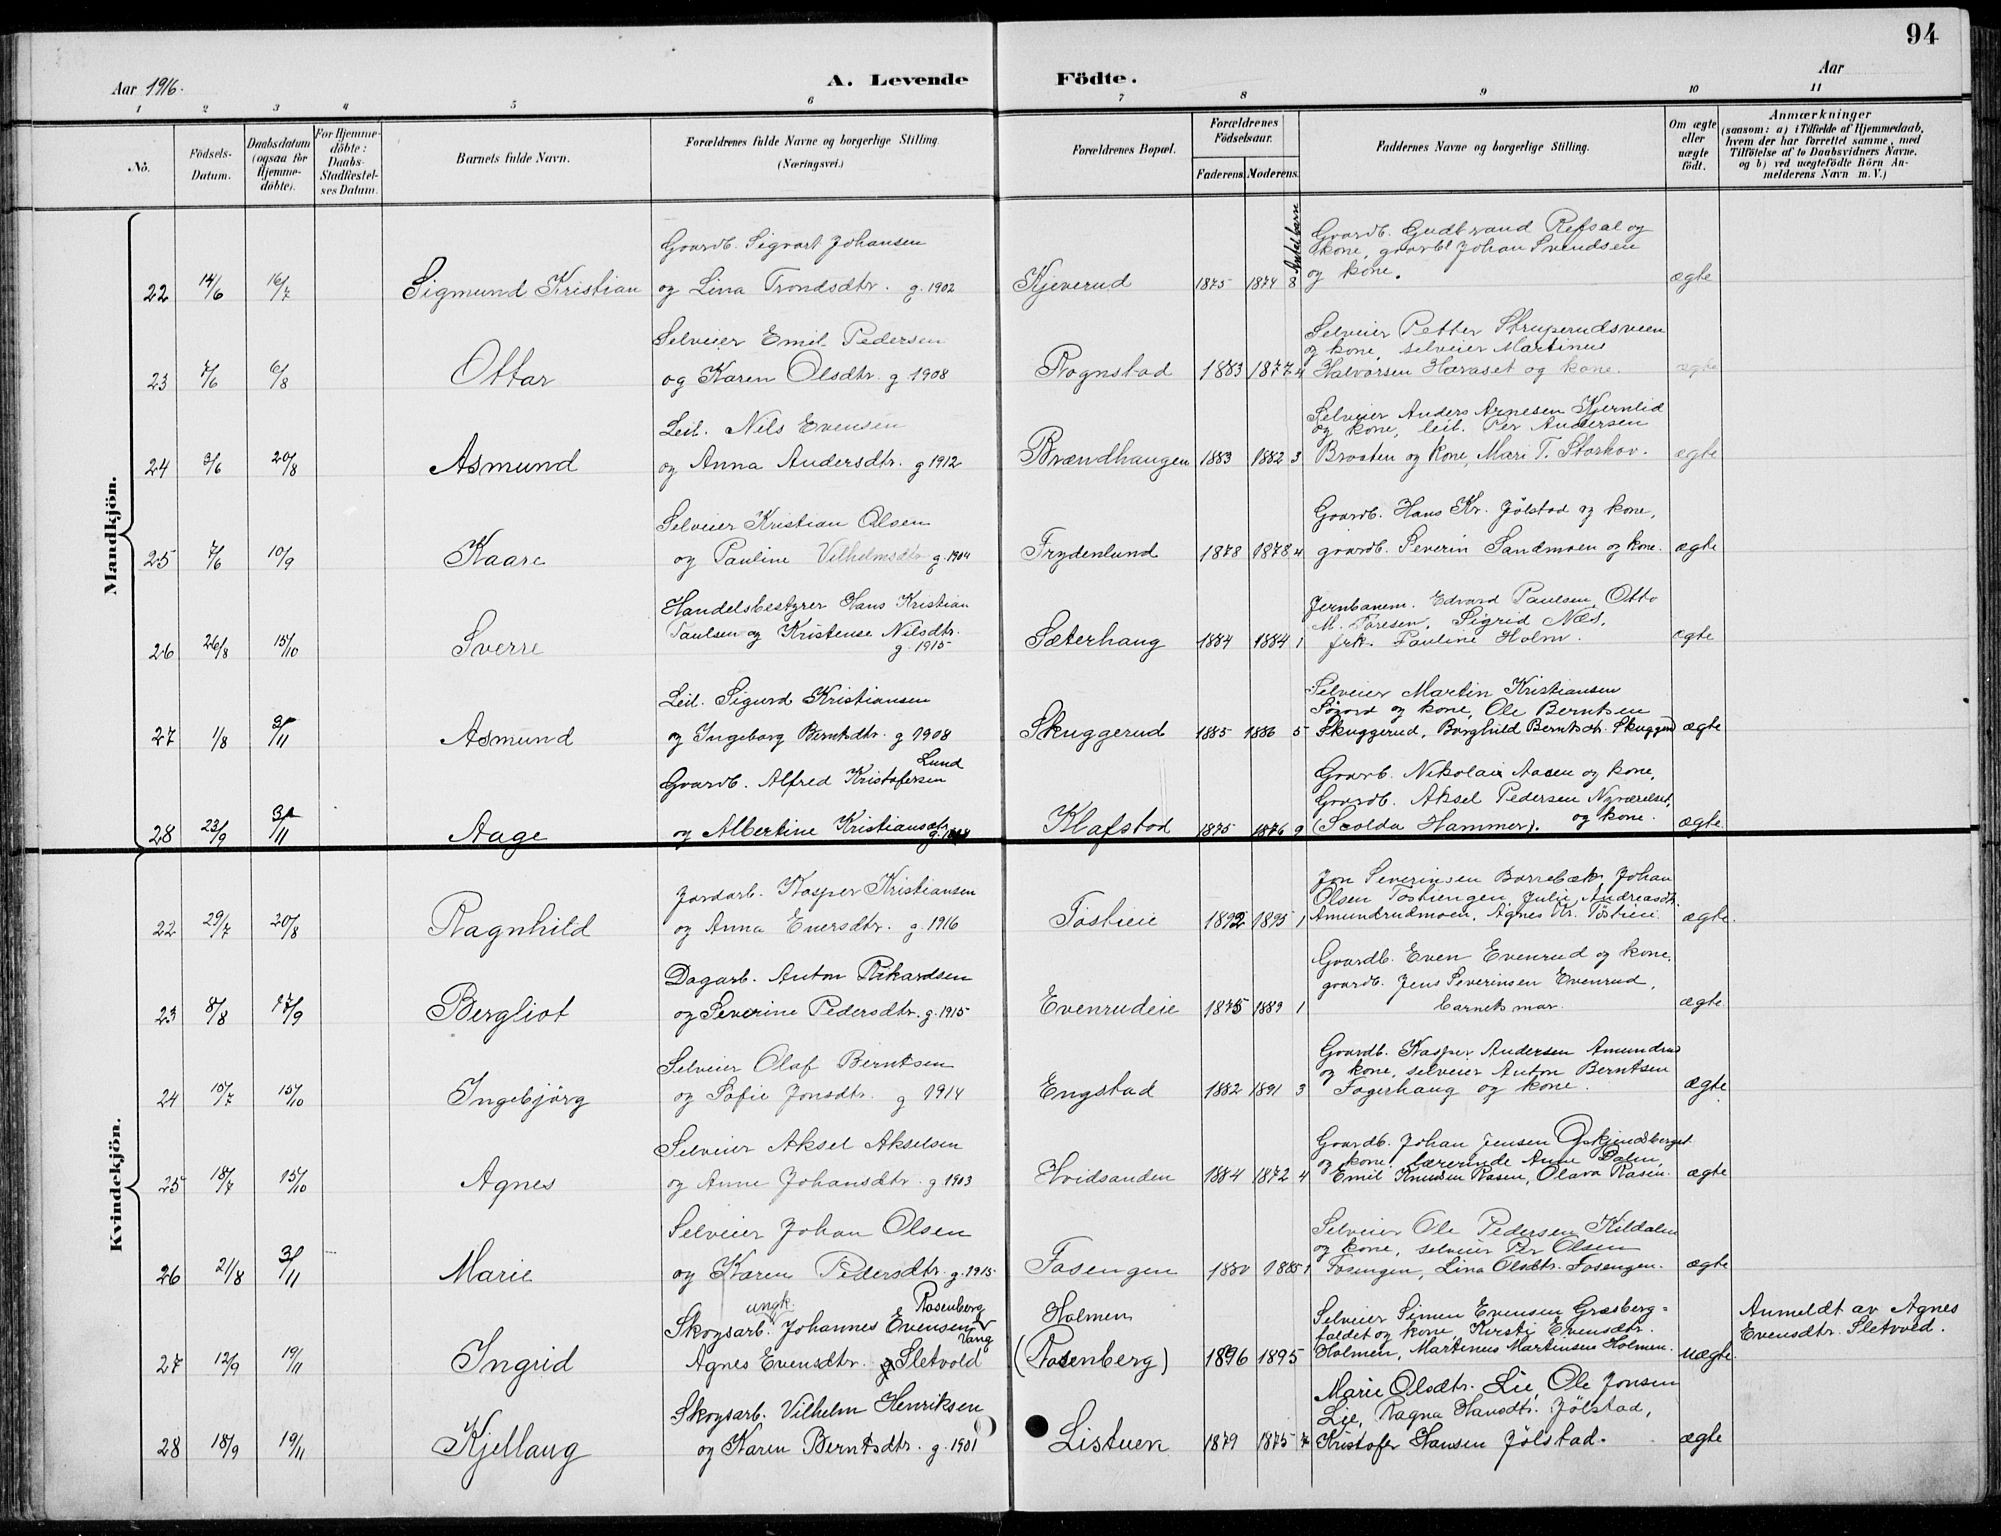 94
Aar 1916.
A. Levende Födte.
Aar
1 2 3 4 5 6 7 8 9 10 11
No.
Födsels-Datum.
Daabsdatum (ogsaa for Hjemme-döbte).
For Hjemme-döbte: Daabs-Stadfæstel-ses Datum.
Barnets fulde Navn.
Forældrenes fulde Navne og borgerlige Stilling. (Næringsvei.)
Forældrenes Bopæl.
Forældrenes Födselsaar.
Faderens. Moderens.
Faddernes Navne og borgerlige Stilling.
Om ægte eller uægte födt.
Anmærkninger
(saasom: a) i Tilfælde af Hjemmedaab,
hvem der har forrettet samme, med
Tilföielse af to Daabsvidners Navne.
og b) ved uægtefödte Börn An-
melderens Navn m. V.)
Antal barn
Mandkjön.
Gaardb. Sigvart Johansen
Gaardb. Gudbrand Refsal og
kone, gaardb. Johan Svendsen
22 14/6 16/7 Sigmund Kristian og Lina Trondsdtr. g. 1902 Kjeverud 1875 1874 8 og kone. ægte
Selveier Emil Pedersen
Selveier Petter Struperudsveen
og kone, selveier Martinus
23 7/6 6/8 Ottar og Karen Olsdtr. g 1908 Rognstad 1883 1877 4 Halvorsen Haraset og kone. ægte
Leil. Nils Evensen
Selveier Anders Arnesen Kjernlid
og kone, leil. Per Andersen
24 3/6 20/8 Asmund og Anna Andersdtr. g 1912 Brændhaugen 1883 1882 3 Braaten og kone, Mari T. Storhov. ægte
Selveier Kristian Olsen
Gaardb. Hans Kr. Jølstad og kone,
25 7/6 10/9 Kaare og Pauline Vilhelmsdtr g. 1904 Frydenlund 1878 1878 4 gaardb. Severin Sandmoen og kone. ægte
Handelsbestyrer Hans Kristian
Jernbanem. Edvard Paulsen, Otto
Paulsen og Kristense Nilsdtr.
M. Paresen, Sigrid Næs,
26 26/8 15/10 Sverre g. 1915 Sæterhaug 1884 1884 1 frk. Pauline Holm. ægte
Leil. Sigurd Kristiansen
Selveier Martin Kristiansen
og kone, Ole Berntsen
27 1/8 3/11 Asmund og Ingeborg Berntsdtr. g 1908 Skuggerud 1885 1886 5 Skuggerud, Borghild Berntsdtr. Skuggerud ægte
Lund
Gaardb. Alfred Kristofersen
Gaardb. Nikolai Aasen og kone,
Gaardb. Aksel Pedersen Nyværelset,
og kone.
28 23/9 3/11 Aage og Albertine Kristiansdtr. Klafstad 1875 1876 9 Hammer). ægte
Kvindekjön.
Jordarb. Kasper Kristiansen
Jon Severinsen Borrebæk, Johan
Olsen Tostiengen, Julie Andreasdtr.
22 29/7 20/8 Ragnhild og Anna Enersdtr. g. 1916 Tostieie 1892 1895 1 Amundrudmoen, Agnes Kr. Tostieie. ægte.
Dagarb. Anton Rikardsen
Gaardb. Even Evenrud og kone,
gaardb. Jens Severinsen Evenrud,
23 8/8 17/9 Bergliot og Severine Pedersdtr. g. 1915 Evenrudeie 1875 1889 1 barnets mor. ægte
Selveier Olaf Berntsen
Gaardb. Kasper Andersen Amundrud
og kone, selveier Anton Berntsen
24 10/7 15/10 Ingebjörg og Sofie Jonsdtr. g 1914 Engstad 1882 1891 3 Fagerhaug og kone. ægte.
Selveier Aksel Akselsen
Gaardb. Johan Jensen
og kone, lærerinde Anne Dalen,
25 18/7 15/10 Agnes og Anne Johansdtr. g 1903 Hvidsanden 1884 1872 4 Emil Knudsen Rasen, Olava Rasen. ægte
Selveier Johan Olsen
Selveier Ole Pedersen Kildalen
og kone, selveier Per Olsen
26 21/8 3/11 Marie og Karen Pedersdtr. g. 1915 Fosengen 1880 1885 1 Fosengen, Lina Olsdtr. Fosengen. ægte
ungk. Rosenberg
Skogsarb. Johannes Evensen
Vang
Holmen
Selveier Simen Evensen Græsberg-
faldet og kone, Kirsti Evensdtr.
Anmeldt av Agnes
Evensdtr. Sletvold.
27 12/9 19/11 Ingrid Agnes Evensdtr. Sletvold (Rosenberg) 1896 1895 Holmen, Martinus Martinsen Holmen. uægte.
Skogsarb. Vilhelm Henriksen
Marie Olsdtr. Lie, Ole Jonsen
Lie, Ragna Hansdtr. Jølstad,
28 18/9 19/11 Kjellaug og Karen Berntsdtr. g. 1901 Listuen 1879 1875 7 Kristofer Hansen Jølstad. ægte